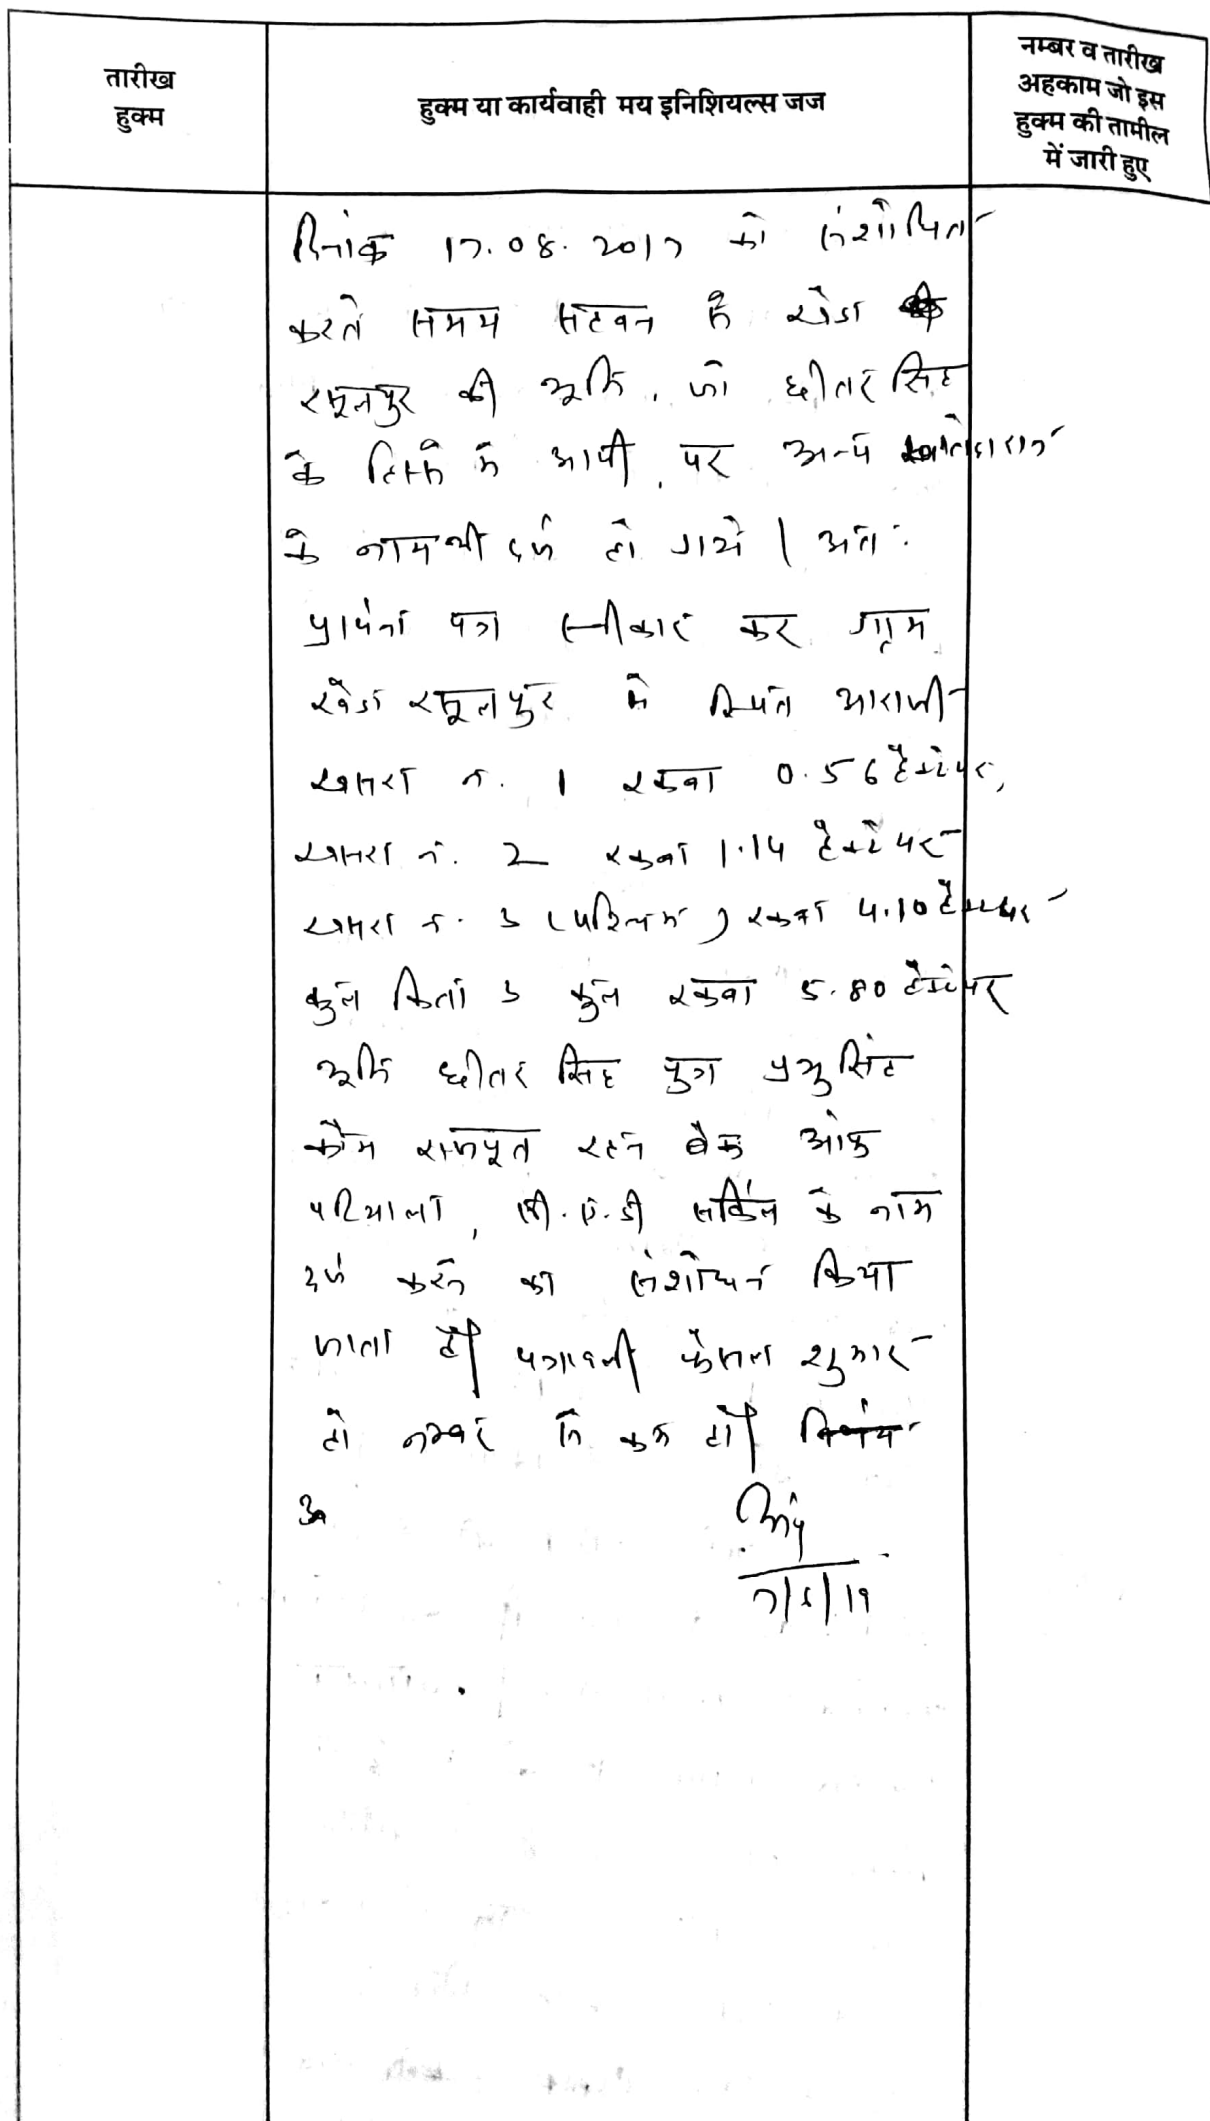 तारीख
हुक्म
हुक्म या कार्यवाही मय इनिशियल्स जज
नम्बर व तारीख
अहकाम जो इस
हुक्म की तामील
में जारी हुए
दिनांक 17.08.2017 को संशोधित
करते समय सहवन से खेडा
रसूलपुर की भूमि, जो छीतर सिंह
के हिस्से मे आयी, पर अन्य खातेदारान
के नाम भी दर्ज हो गये। अतः
प्रार्थना पत्र स्वीकार कर ग्राम
खेडा रसूलपुर मे स्थित आराजी
खसरा न. 1 रकबा 0.56 हैक्टेयर,
खसरा नं. 2 रकबा 1.14 हैक्टेयर
खसरा न. 3 (पश्चिम) रकबा 4.10 हैक्टेयर
कुल किता 3 कुल रकबा 5.80 हैक्टेयर
भूमि छीतर सिंह पुत्र प्रभु सिंह
कौम राजपूत रहन बैंक ओफ
पटियाला, सी.ए.डी सर्किल के नाम
दर्ज करने का संशोधन किया
जाता है। पत्रावली फैसल शुमार
हो नम्बर से कम हो। निर्णय
7/8/19